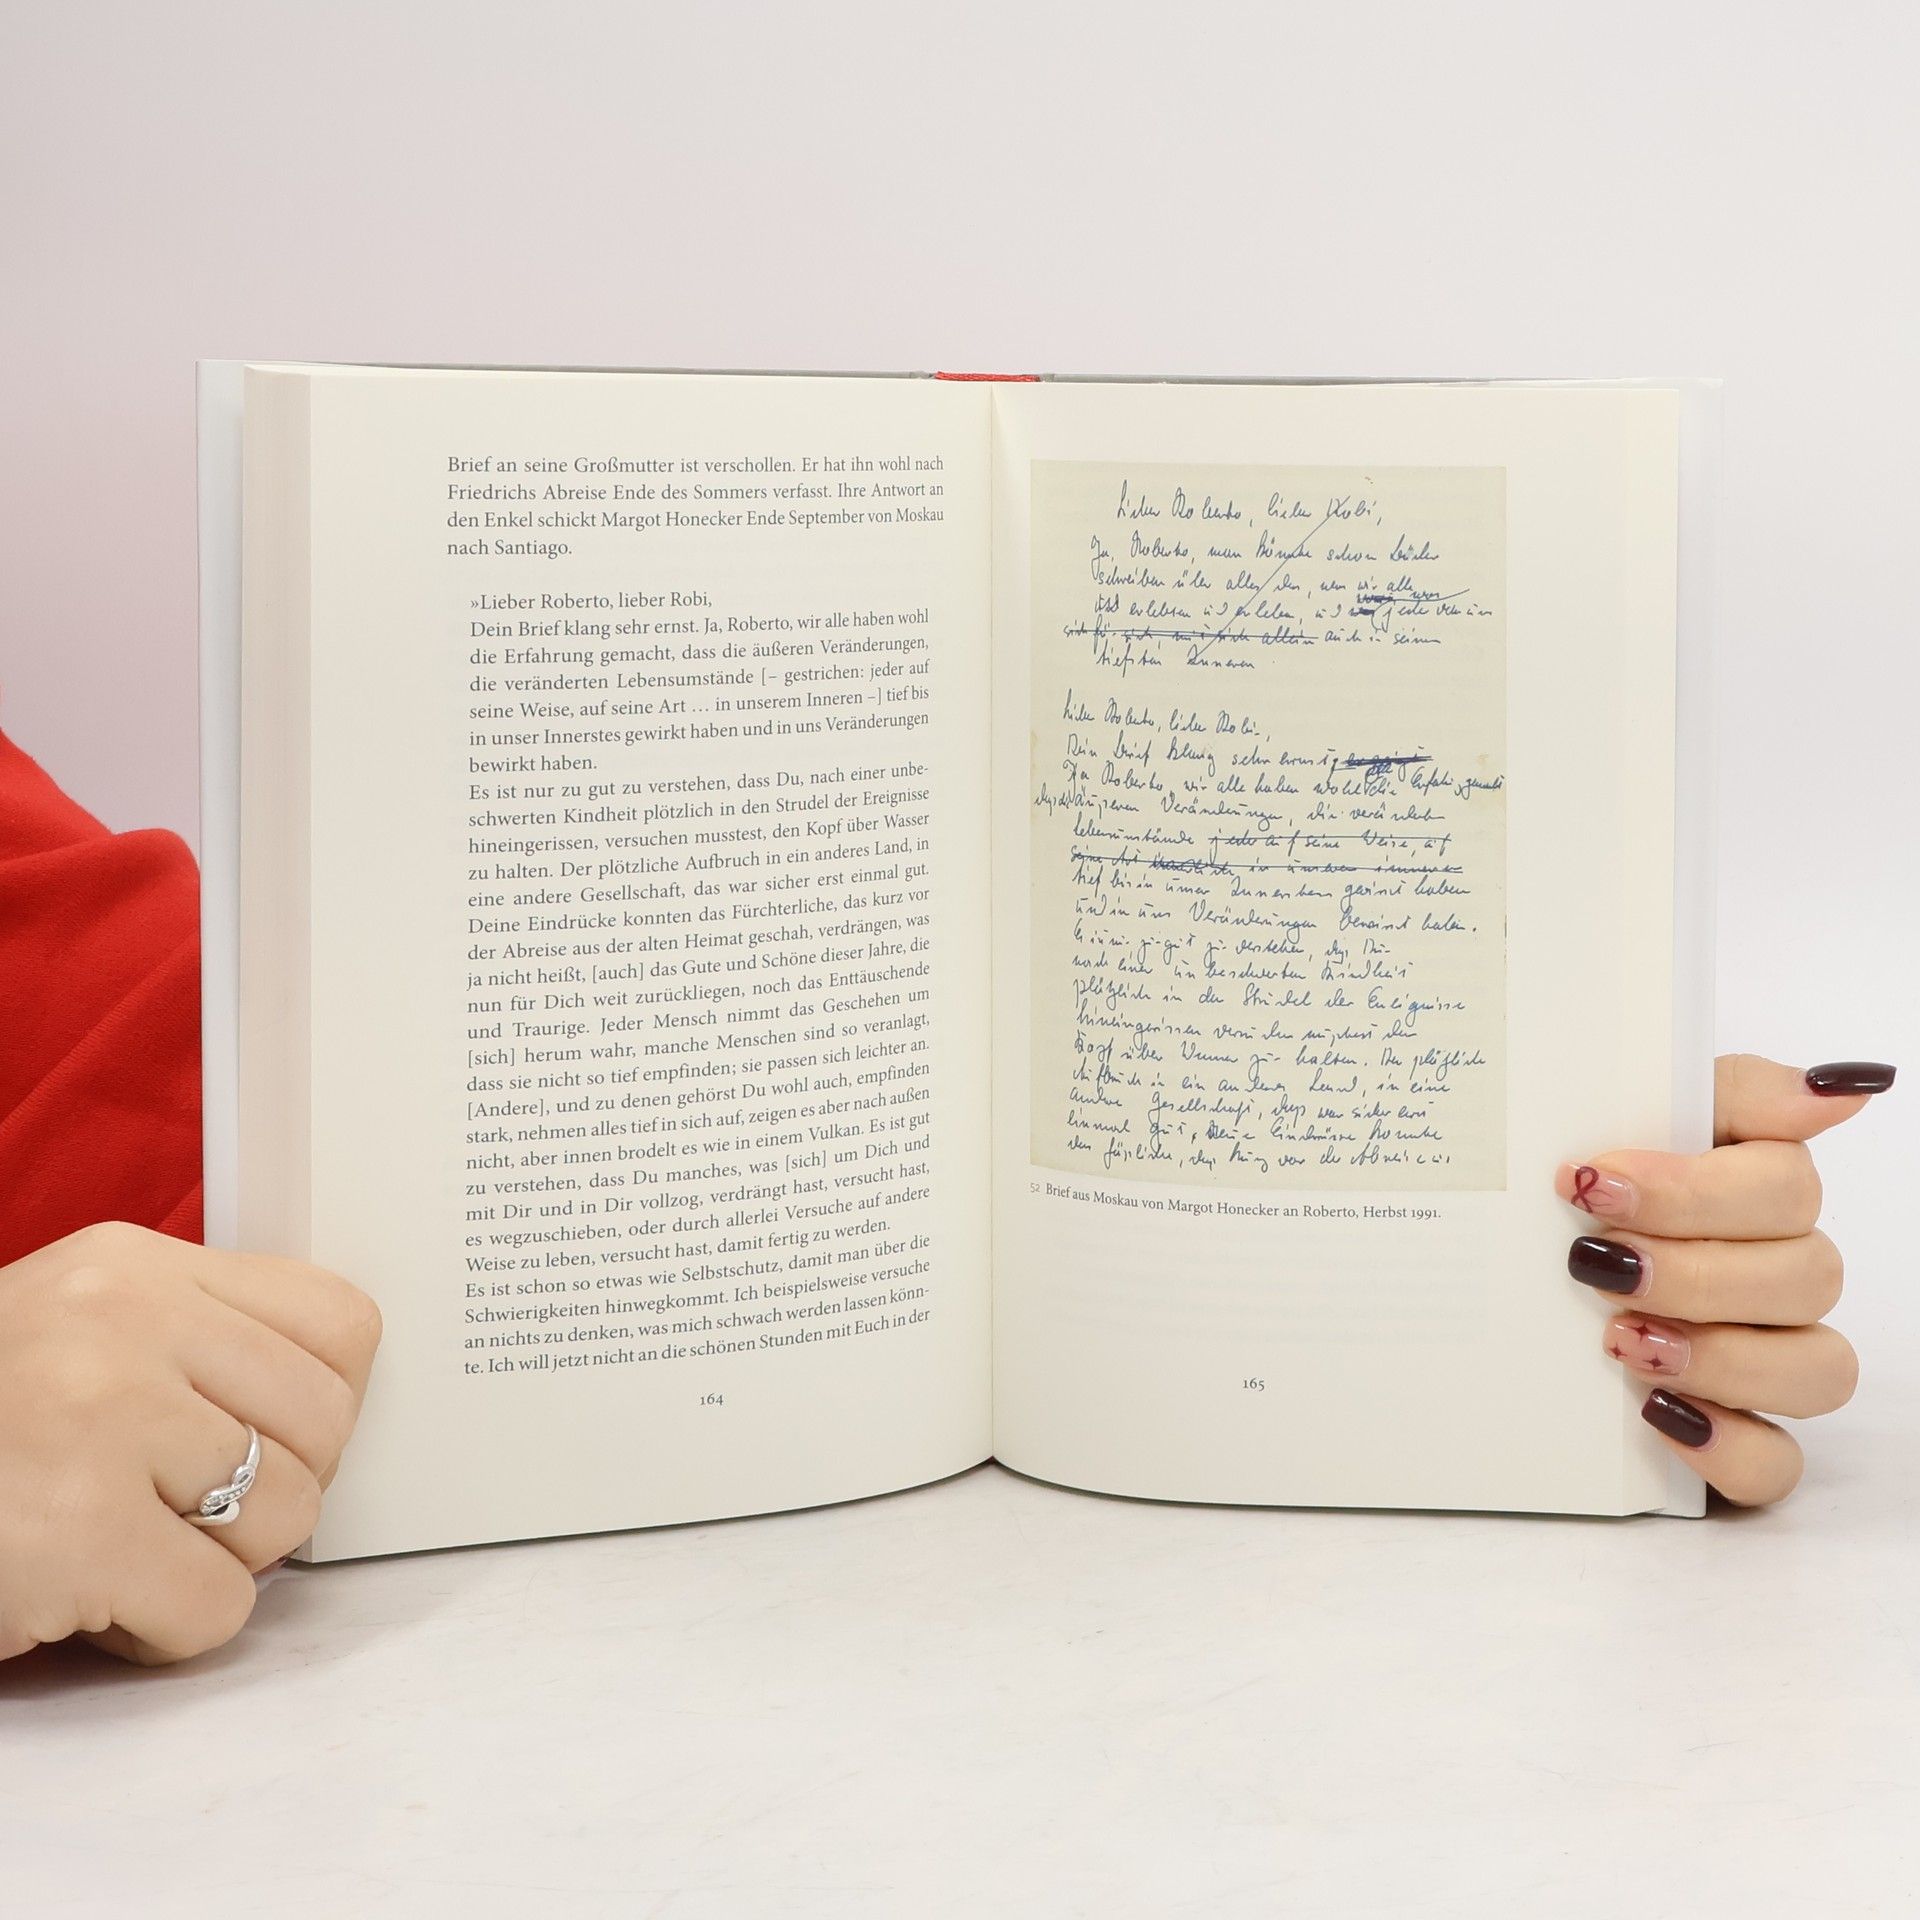 Brief an seine Großmutter ist verschollen. Er hat ihn wohl nach
Friedrichs Abreise Ende des Sommers verfasst. Ihre Antwort an
den Enkel schickt Margot Honecker Ende September von Moskau
nach Santiago.
»Lieber Roberto, lieber Robi,
Dein Brief klang sehr ernst. Ja, Roberto, wir alle haben wohl
die Erfahrung gemacht, dass die äußeren Veränderungen,
die veränderten Lebensumstände [– gestrichen: jeder auf
seine Weise, auf seine Art … in unserem Inneren –] tief bis
in unser Innerstes gewirkt haben und in uns Veränderungen
bewirkt haben.
Es ist nur zu gut zu verstehen, dass Du, nach einer unbe-
schwerten Kindheit plötzlich in den Strudel der Ereignisse
hineingerissen, versuchen musstest, den Kopf über Wasser
zu halten. Der plötzliche Aufbruch in ein anderes Land, in
eine andere Gesellschaft, das war sicher erst einmal gut.
Deine Eindrücke konnten das Fürchterliche, das kurz vor
der Abreise aus der alten Heimat geschah, verdrängen, was
ja nicht heißt, [auch] das Gute und Schöne dieser Jahre, die
nun für Dich weit zurückliegen, noch das Enttäuschende
und Traurige. Jeder Mensch nimmt das Geschehen um
[sich] herum wahr, manche Menschen sind so veranlagt,
dass sie nicht so tief empfinden; sie passen sich leichter an.
[Andere], und zu denen gehörst Du wohl auch, empfinden
stark, nehmen alles tief in sich auf, zeigen es aber nach außen
nicht, aber innen brodelt es wie in einem Vulkan. Es ist gut
zu verstehen, dass Du manches, was [sich] um Dich und
mit Dir und in Dir vollzog, verdrängt hast, versucht hast,
es wegzuschieben, oder durch allerlei Versuche auf andere
Weise zu leben, versucht hast, damit fertig zu werden.
Es ist schon so etwas wie Selbstschutz, damit man über die
Schwierigkeiten hinwegkommt. Ich beispielsweise versuche
an nichts zu denken, was mich schwach werden lassen könn-
te. Ich will jetzt nicht an die schönen Stunden mit Euch in der
164
Lieber Roberto, lieber Robi,
Ja, Roberto, man könnte schon Bücher
schreiben über alles das, was wir alle
erlebten und erleben, und jeder von uns
auch in seinem
tiefsten Inneren
Lieber Roberto, lieber Robi,
Dein Brief klang sehr ernst,
Ja Roberto, wir alle haben wohl die Erfahrung gemacht
äußeren Veränderungen, die veränderten
Lebensumstände jeder auf seine Weise, auf
seine Art in unserem inneren
tief bis in unser Innerstes gewirkt haben
und in uns Veränderungen bewirkt haben.
Es ist nur zu gut zu verstehen, daß Du
nach einer unbeschwerten Kindheit
plötzlich in den Strudel der Ereignisse
hineingerissen versuchen mußtest den
Kopf über Wasser zu halten. Der plötzliche
Aufbruch in ein anderes Land, in eine
andere Gesellschaft, das war sicher erst
einmal gut, Deine Eindrücke konnten
das kurz vor der Abreise aus
52 Brief aus Moskau von Margot Honecker an Roberto, Herbst 1991.
165